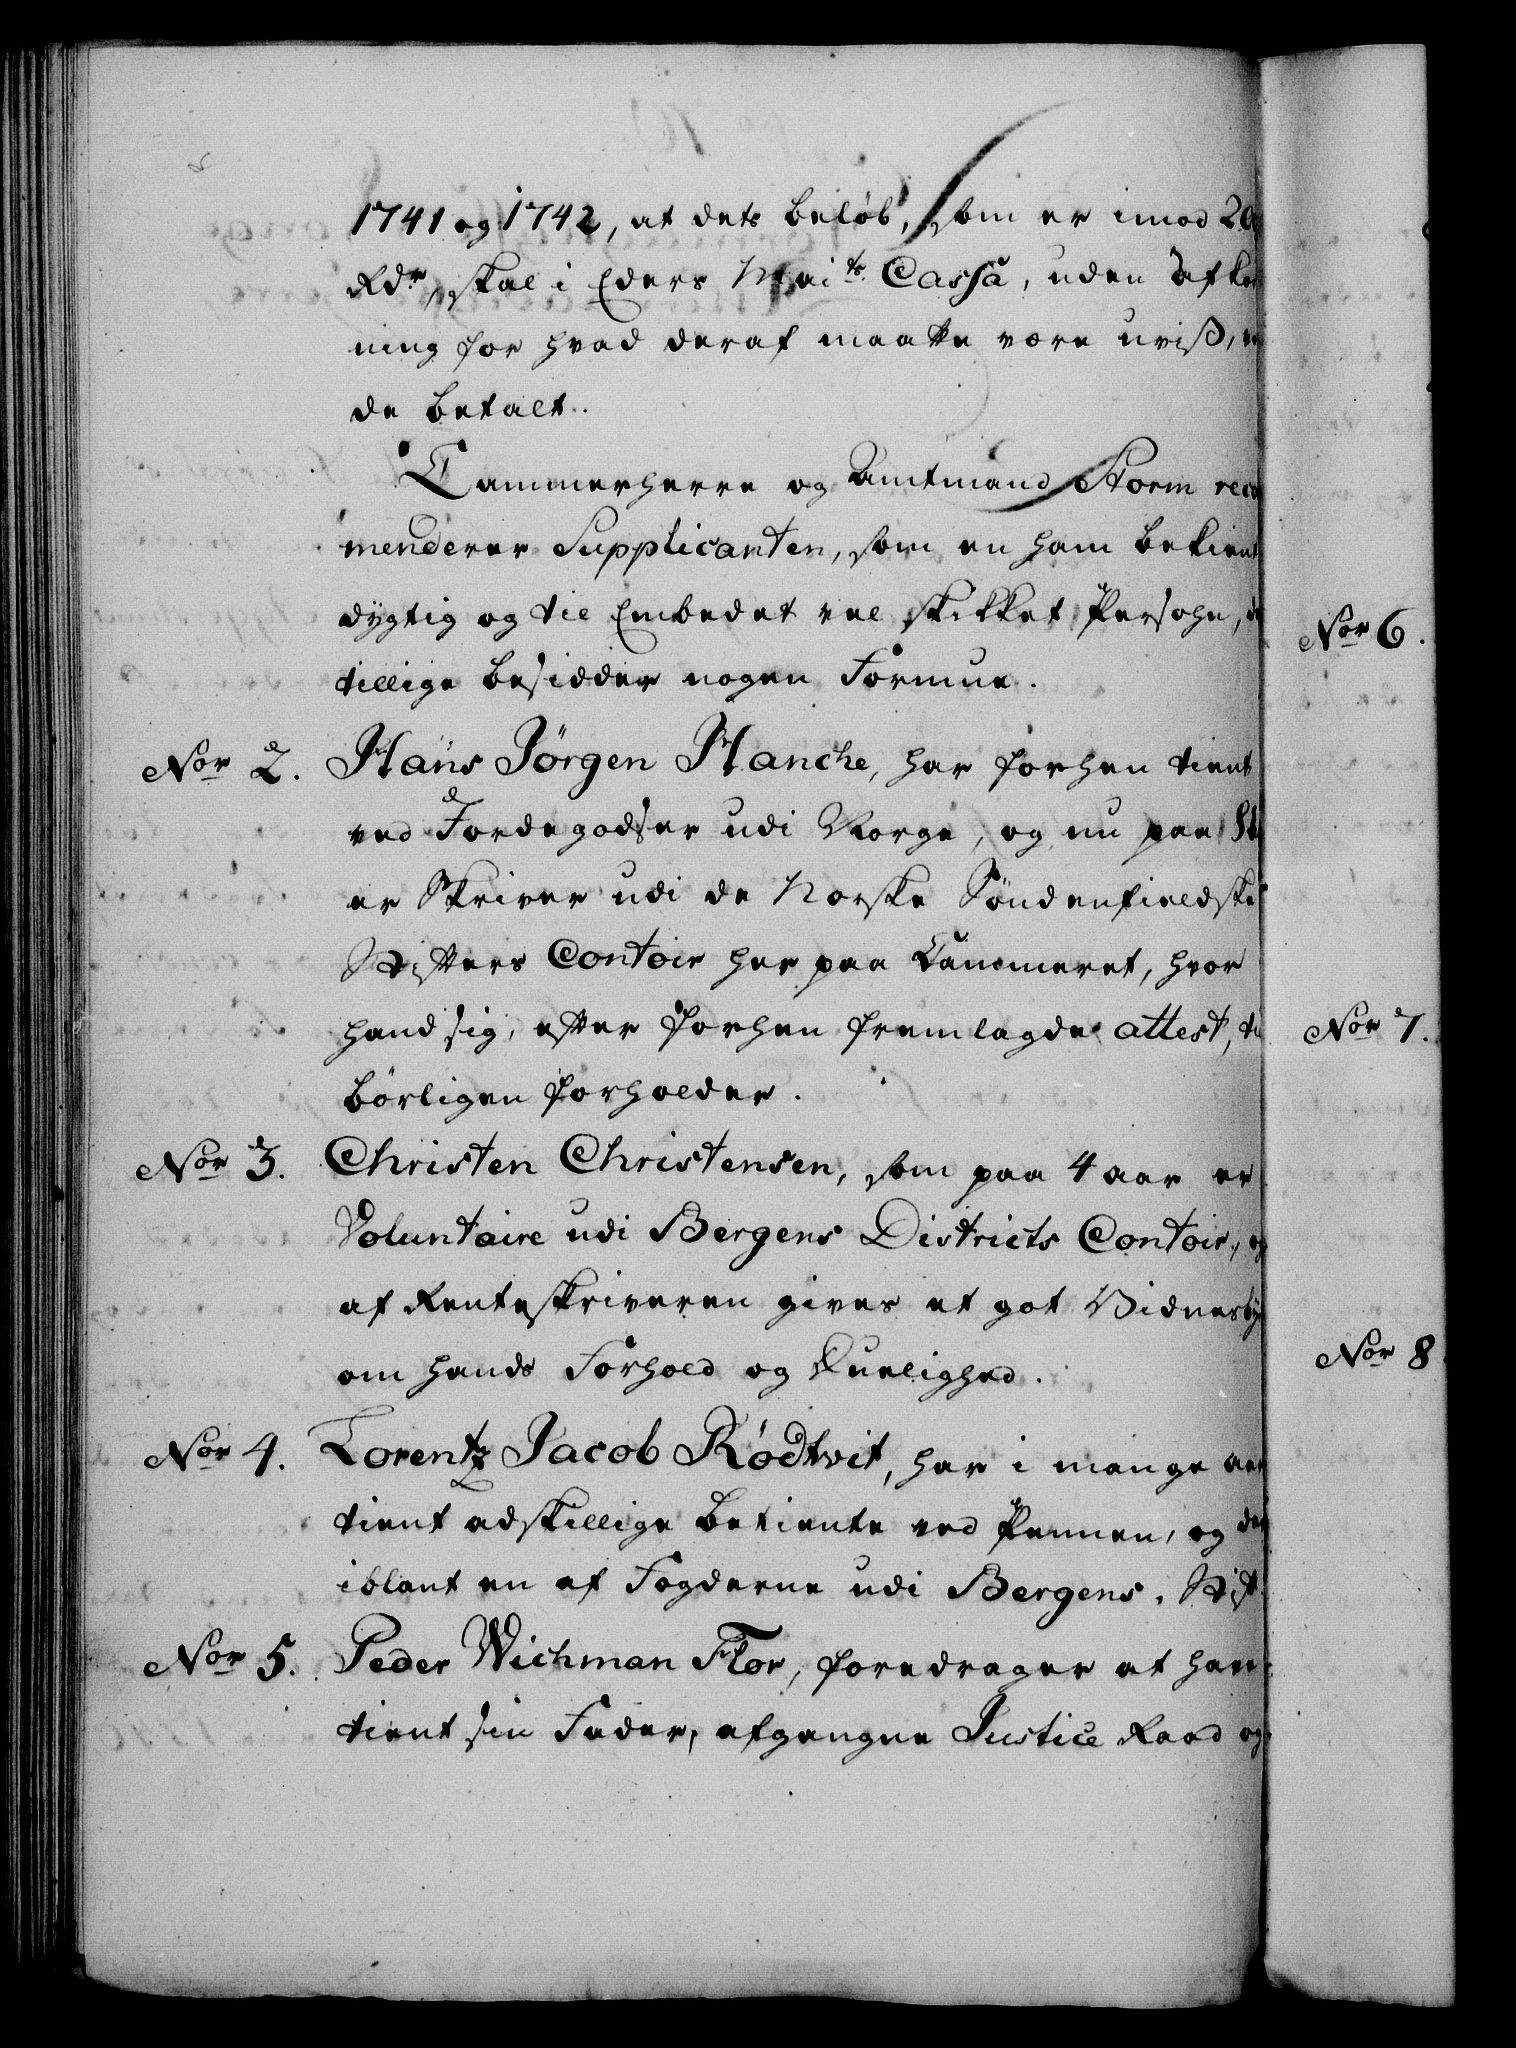 1741 og 1742, at dets beløb, som er imod 20
Rdr, skal i Eders Maits. Cassa, uden afkor
ning for hvad deraf maatte være uviß, vor
de betalt.
Cammerherre og Amtmand Storm recom
menderer Supplicanten, som en ham bekiendt
dygtig og til Embedet vel skikket Persohn, der
tillige besidder nogen Formue.
Nor 2. Hans Jørgen Hanche, har forhen tient
ved Jordegodser udi Norge, og nu paa
er Skriver udi de Norske Søndenfieldske
Stifters Contoir her paa Cammeret, hvor
hand sig, efter forhen fremlagde attest, til
børligen forholder.
Nor 3. Christen Christensen, som paa 4 aar er
Voluntaire udi Bergens Districts Contoir, og
af Renteskriveren gives et got Vidnesby
om hands Forhold og Duelighed.
Nor 4. Lorentz Jacob Rødtvit, har i mange aar
tient adskillige betiente ved Pennen, og der
iblant en af Fogderne udi Bergens Stift.
Nor 5. Peder Wichman Flor, foredrager at have
tient sin Fader, afgangne Justice Raad og
Nor 6.
Nor 7.
Nor 8